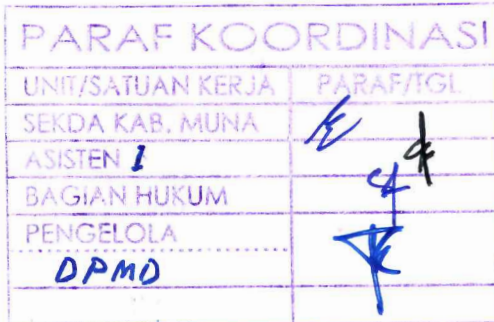 PARAF KOORDINASI
UNIT/SATUAN KERJA PARAF/TGL
SEKDA KAB. MUNA
ASISTEN I
BAGIAN HUKUM
PENGELOLA
DPMD